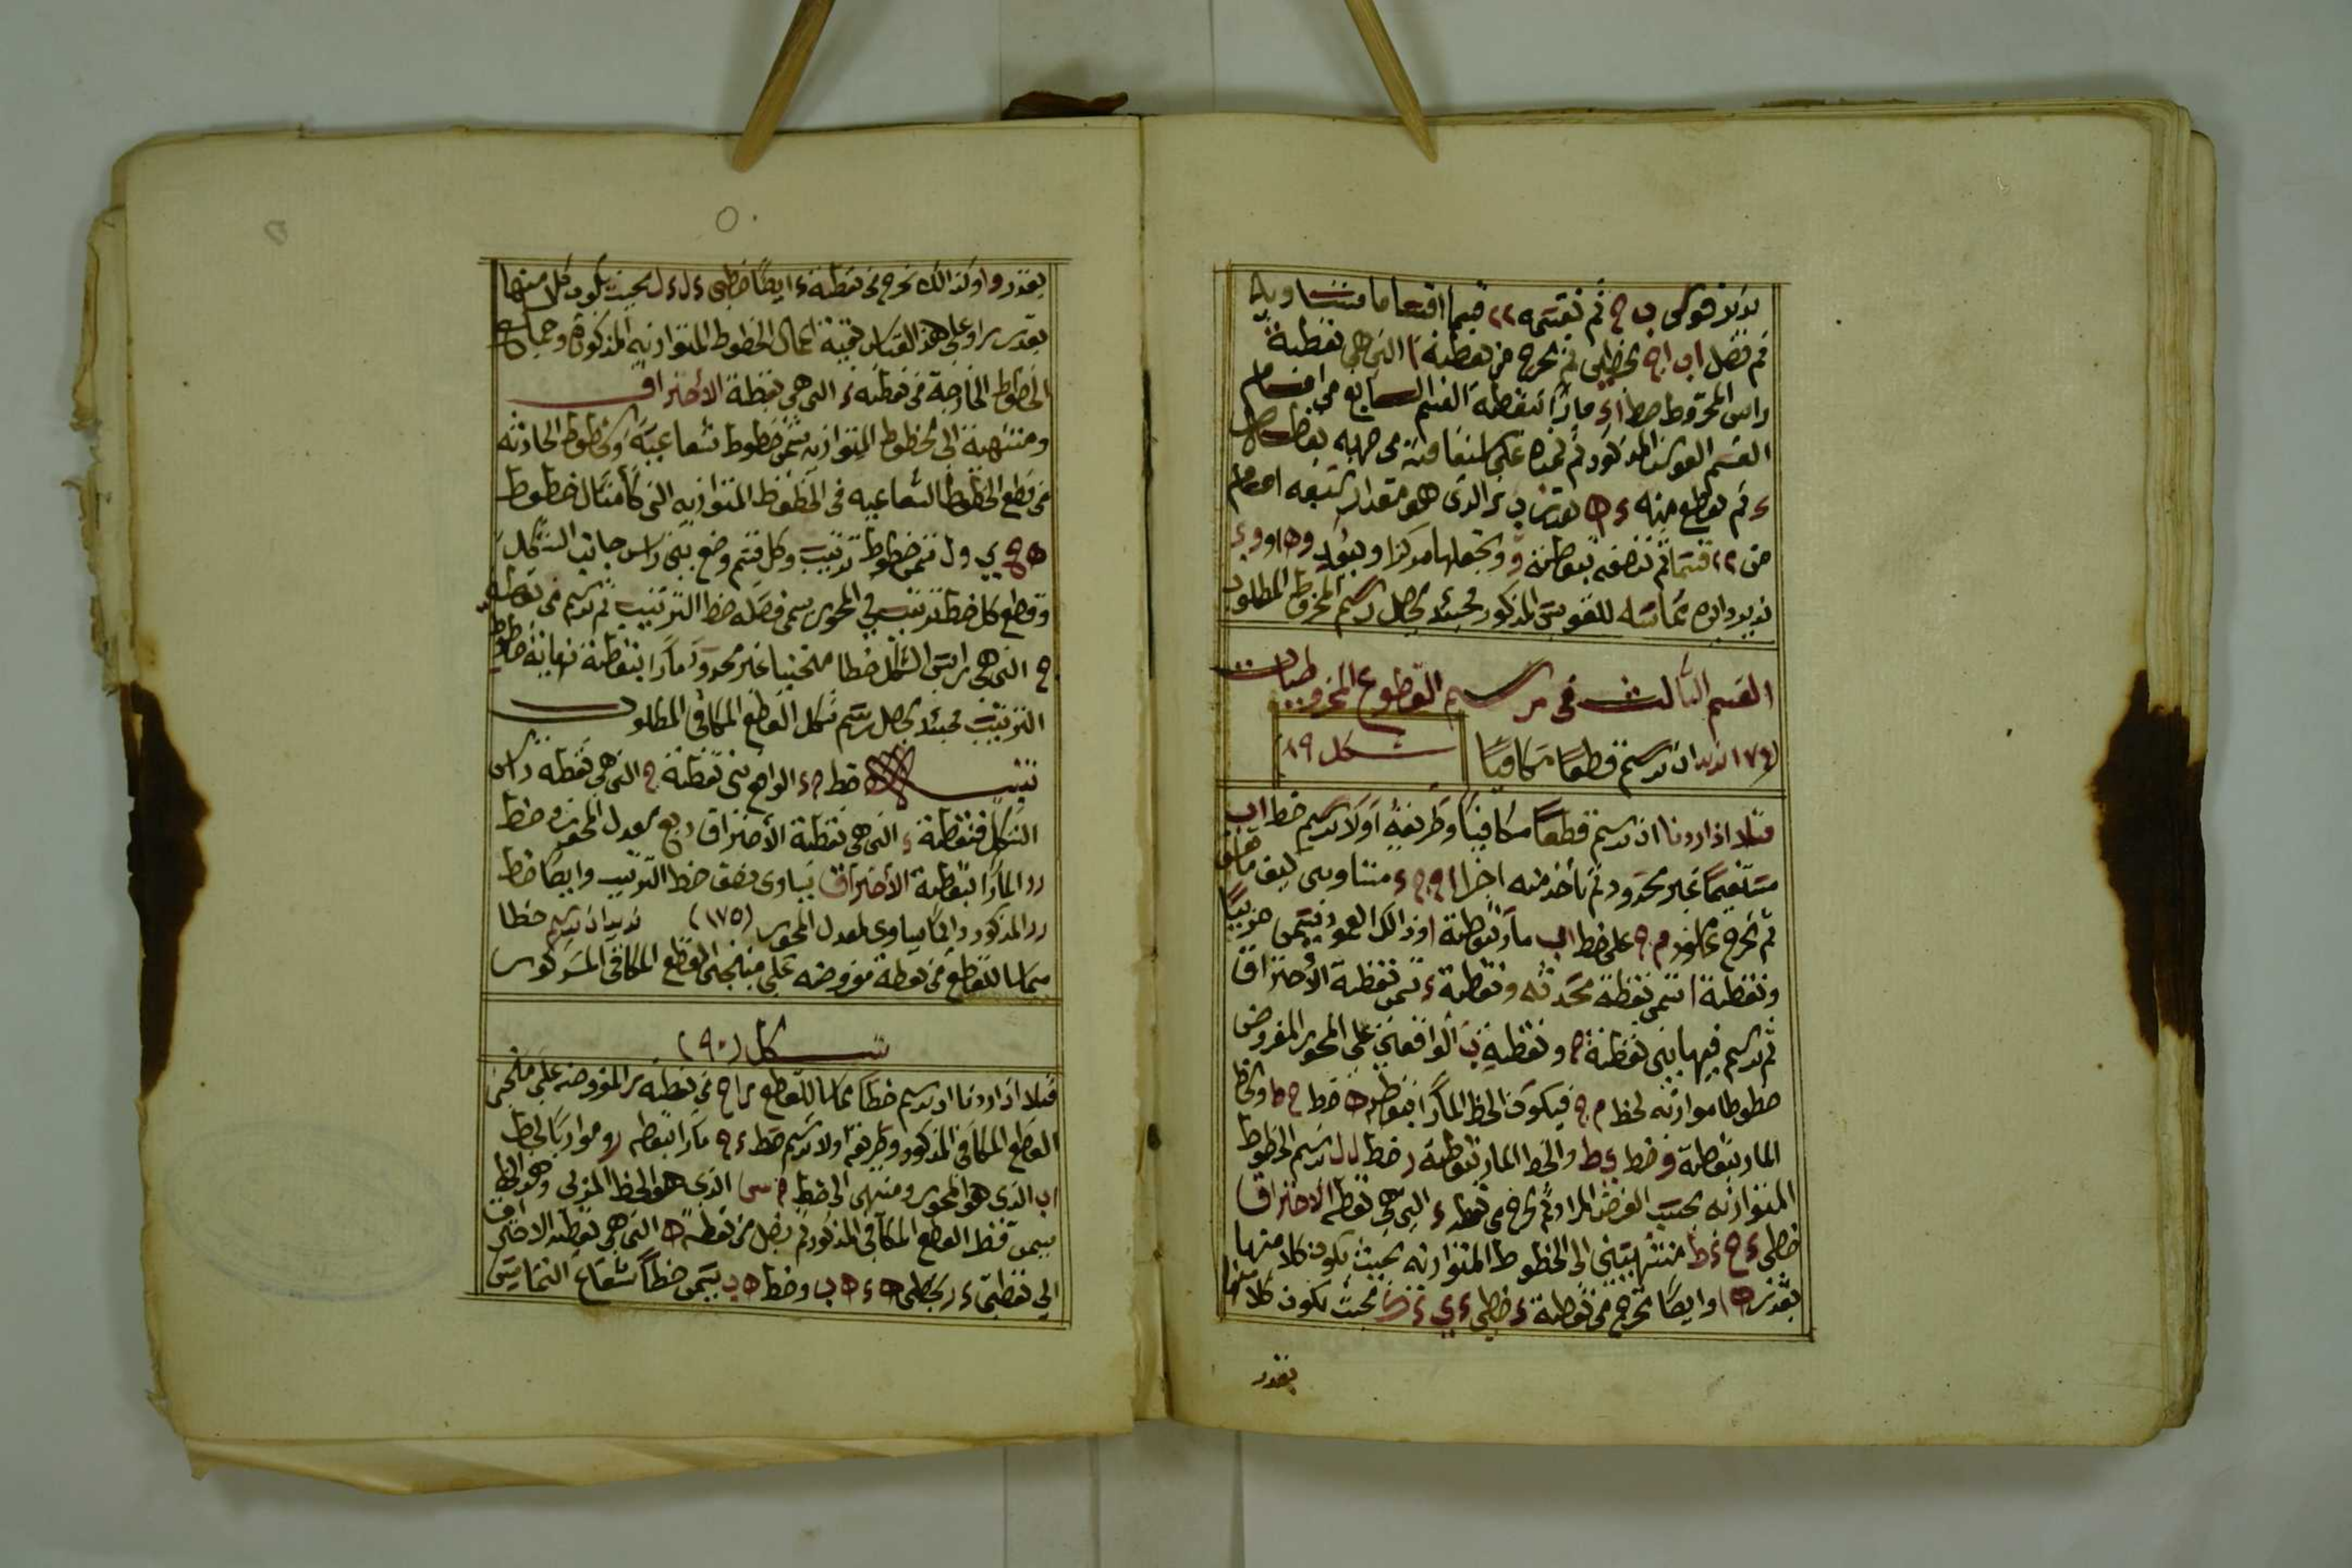 بدلا قوسى ب ج ثم نقسمه ٢٢ قسما اقساما متساويه
ثم نصل اب اج بخطين ثم نخرج من نقطة ا التى هى نقطة
راس المخروط خط اء مارا بنقطة القسم السابع من اقسام
القسم القوس المذكور ثم نمده على استقامته من جهة نقطة
ء ثم نقطع منه ء ه بقدر ب ء الذى هو مقدار سبعه اقسام
من ٢٢ قسما ثم ننصفه بنقطة و ونجعلها مركزا وببعد وه او وء
ندير دائره مماسه للقوس المذكور فحينئذ يحصل رسم المخروط المطلوب
القسم الثالث فى رسم القطوع المخروطيات
(١٧٤) نريد ان نرسم قطعا مكافيا شكل ٨٩
فمثلا اذا اردنا ان نرسم قطعا مكافيا وطريقه اولا نرسم خط اب
مستقيما غير محدود ثم نأخذ منه اجزا اج ج ء متساويين كيف ما اتفق
ثم نخرج عامود م ج على خط اب مار بنقطة ا وذالك العمود يسمى
ونقطة ا تسمى نقطة محدثه ونقطة ء تسمى نقطة الأحتراق
ثم نرسم فيها بين نقطة ج ونقطة ب الواقعتين على المحور المفروض
خطوطا موازته لخط م ج فيكون الخط المار بنقطة ه خط ح ط والخط
المار بنقطة و خط ى ط والخط المار بنقطة ر خط ل ل نرسم الخطوط
المتوازته بحسب الغرض المراد ثم نخرج من نقطة ء التى هى نقطة الاحتراق
خطى ء ح ء ط منتهيتين الى الخطوط المتوازته بحيث يكون كلا منها
بقدر ه ا وايضا نخرج من نقطة ء خطى ء ى ء ك بحيث يكون كلا منها
بقدر
بقدر وا وكذالك نخرج من نقطة ء ايضا خطى ء ل ء ل بحيث يكون كل منها
بقدر را وعلى هذا القياس بقية اعمال الخطوط المتوازيه المذكورة وجميع
الخطوط الخارجة من نقطة ء التى هى نقطة الأحتراق
ومنتهية الى الخطوط المتوازيه تسمى خطوط شعاعية والخطوط الحادثه
من قطع الخطوط الشعاعيه فى الخطوط المتوازيه التى كأمثال خطوط
ه ح ى و ل تسمى خطوط ترتيب وكل قسم وضع بين راس جانب الشكل
وقطع كل خط ترتيب فى المحور يسمى فصله خط الترتيب ثم نرسم من نقطة
ج التى هى راس الشكل خطا منحنيا غير محدود مارا بنقطة نهاية خطوط
الترتيب فحينئذ يحصل رسم شكل القطع المكافى المطلوب
تنبيه خط ج ء الواقع بين نقطة ج التى هى نقطة راس
الشكل فنقطة ء التى هى نقطة الأحتراق ربع معدل المحور وخط
رر المار بنقطة الأحتراق يساوى نصف خط الترتيب وايضا خط
رر المذكور دائما يساوى لمعدل المحور (١٧٥) نريد ان نرسم خطا
مماسا للقطع من نقطة مفروضه على منحنى القطع المكافى المذكور
شكل (٩٠)
فمثلا اذا اردنا ان نرسم خطا مماسا للقطع راج من نقطة ر المفروضه على منحنى
القطع المكافى المذكور وطريقه اولا نرسم خط ء ج مارا بنقطه ر وموازيا لخط
اب الذى هو المحور ومنتهى الى خط م س الذى هو الخط المدلى وهو الخط
يسمى قطر القطع المكافى المذكور ثم نصل من نقطة ه التى هى نقطة الاحتراق
الى نقطتى ء ر بخطى ه ء ه ب وخط ه ب يسمى خطا شعاع التماس